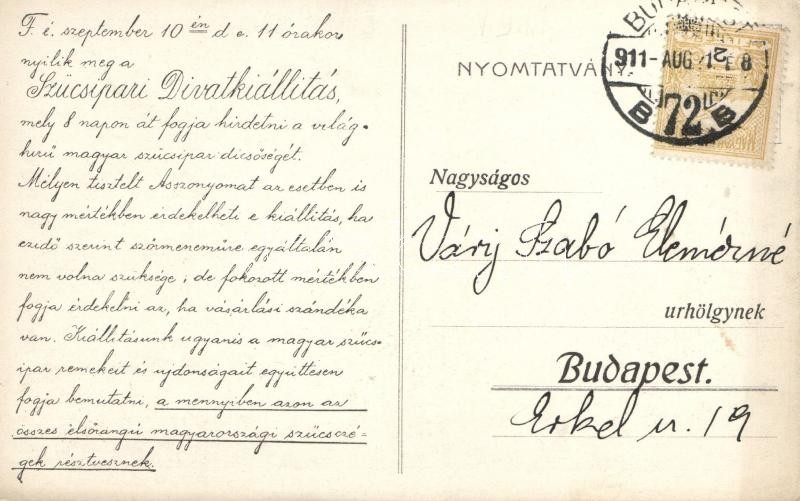 F. é. szeptember 10 én d. e. 11 órakor
nyilik meg a
Szücsipari Divatkiállitás,
mely 8 napon át fogja hirdetni a világ-
hirű magyar szücsipar dicsőségét.
Mélyen tisztelt Asszonyomat az esetben is
nagy mértékben érdekelheti e kiállitás, ha
ezidő szerint szőrmeneműre egyáltalán
nem volna szüksége; de fokozott mértékben
fogja érdekelni az, ha vásárlási szándéka
van. Kiállitásunk ugyanis a magyar szücs-
ipar remekeit és ujdonságait együttesen
fogja bemutatni, a mennyiben azon az
összes elsőrangú magyarországi szücsczé-
gek résztvesznek.
NYOMTATVÁNY.
911 - AUG
72
B B
Nagyságos
Váry Szabó Elemérné
urhölgynek
Budapest.
Erkel u. 19